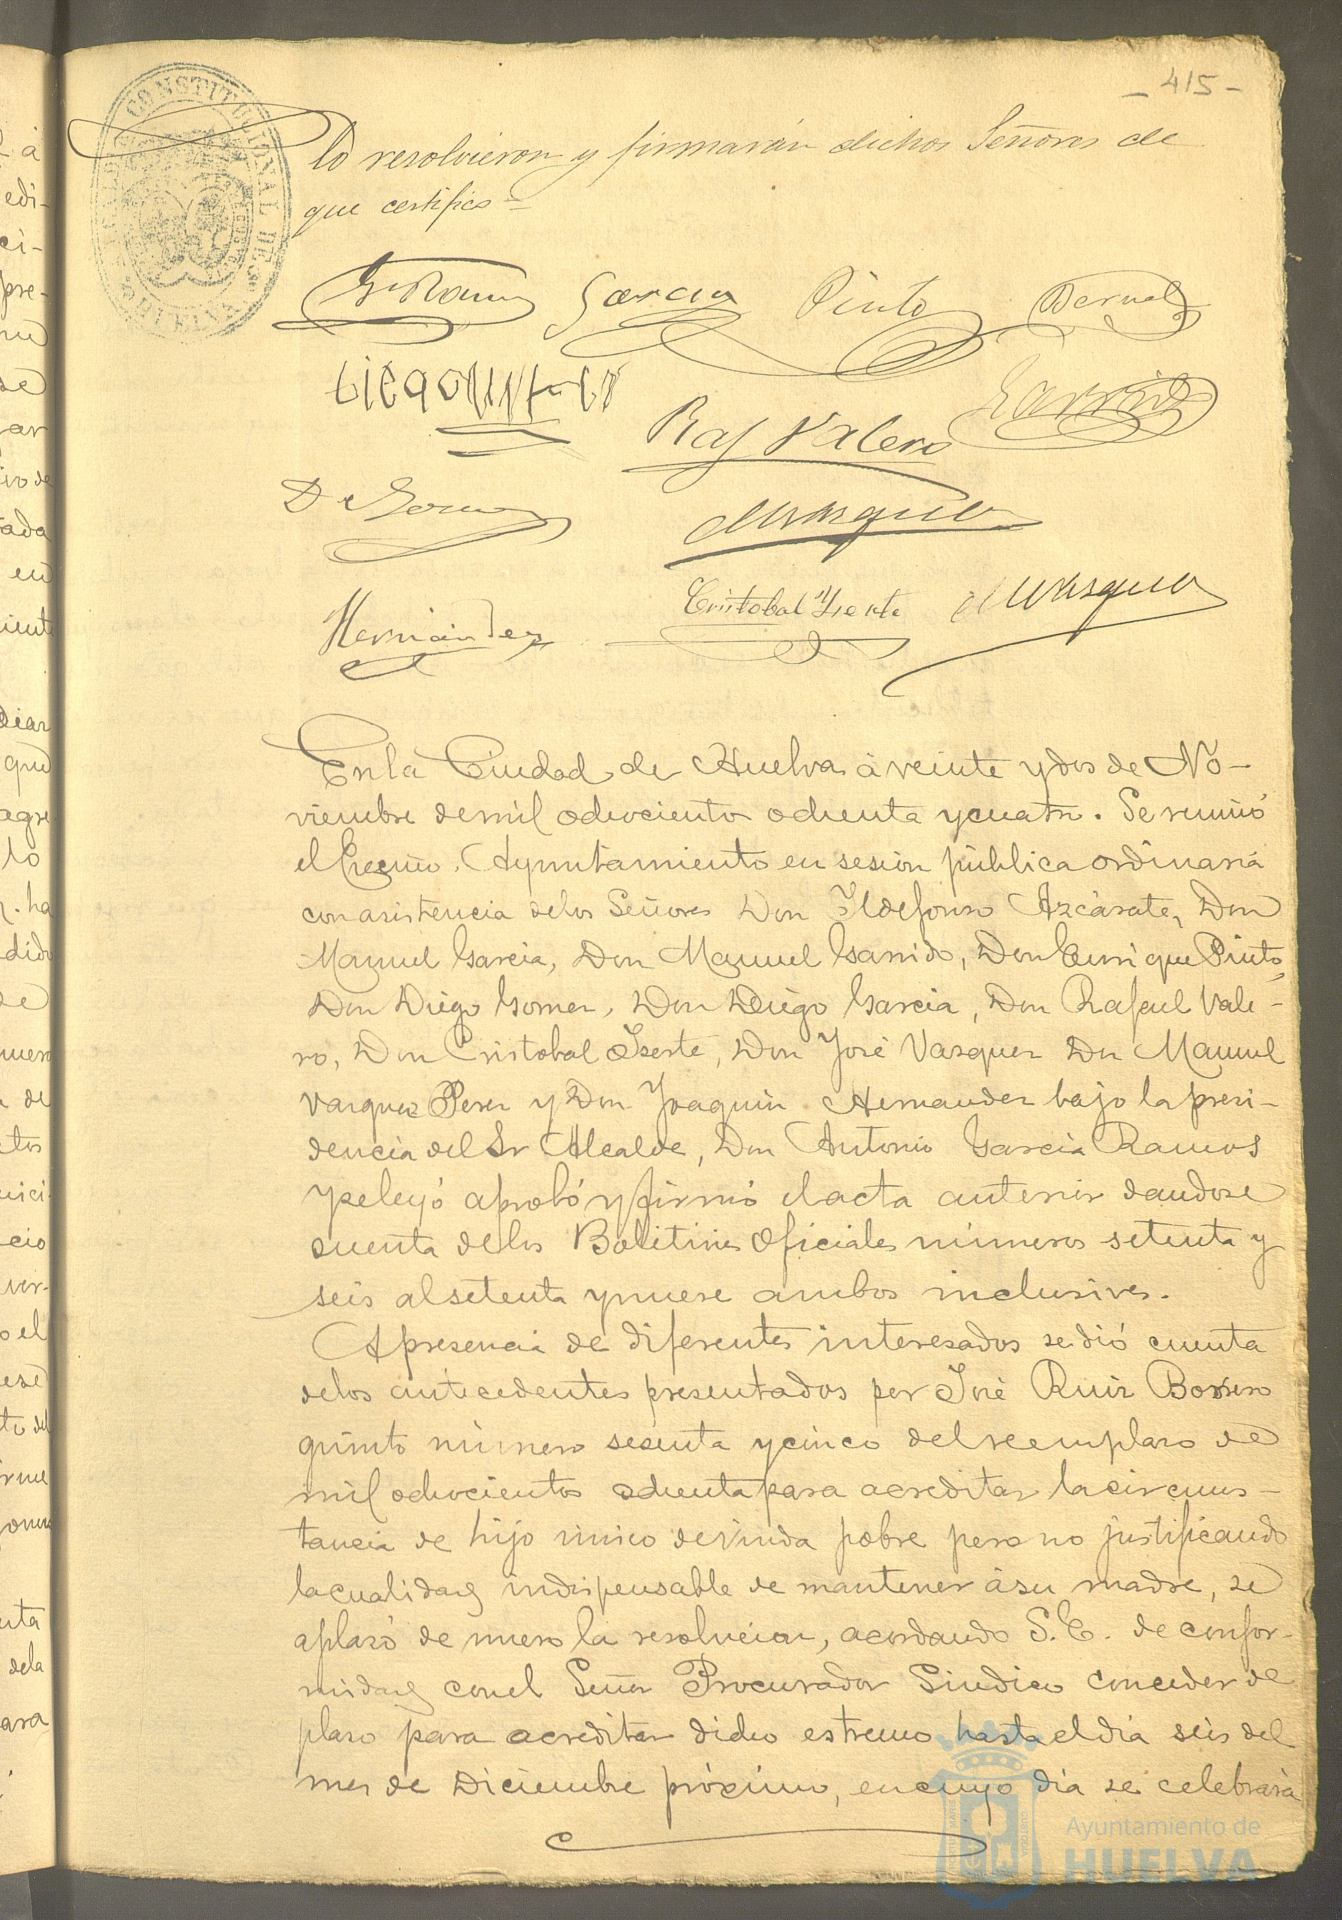 - 415 -
lo resolvieron y firmarán dichos Señores de
que certifico =
Gª Ramos García Pinto Bernal
Garrido
Raf Valero
D. Gomez
M Vasquez
Hernández Cristobal Yserte M Vasquez
En la Ciudad de Huelva á veinte y dos de No-
viembre de mil ochocientos ochenta y cuatro. Se reunió
el Excmo. Ayuntamiento en sesión pública ordinaria
con asistencia de los Señores Don Ildefonso Azcárate, Don
Manuel Garcia, Don Manuel Garrido, Don Enrique Pinto,
Don Diego Gomez, Don Diego Garcia, Don Rafael Vale-
ro, Don Cristobal Iserte, Don José Vazquez Don Manuel
Vazquez Perez y Don Joaquin Hernandez bajo la presi-
dencia del Sr Alcalde, Don Antonio Garcia Ramos
y se leyó aprobó y firmó el acta anterior dandose
cuenta de los Boletines Oficiales números setenta y
seis al setenta y nueve ambos inclusives.
A presencia de diferentes interesados se dió cuenta
de los antecedentes presentados por José Ruiz Borrero
quinto número sesenta y cinco del reemplazo de
mil ochocientos ochenta para acreditar la circuns-
tancia de hijo único de viuda pobre pero no justificando
la cualidad indispensable de mantener á su madre, se
aplazó de nuevo la resolucion, acordando S. E. de confor-
midad con el Señor Procurador Sindico conceder de
plazo para acreditar dicho estremo hasta el dia seis del
mes de Diciembre próximo, en cuyo dia se celebrará
Ayuntamiento de
HUELVA